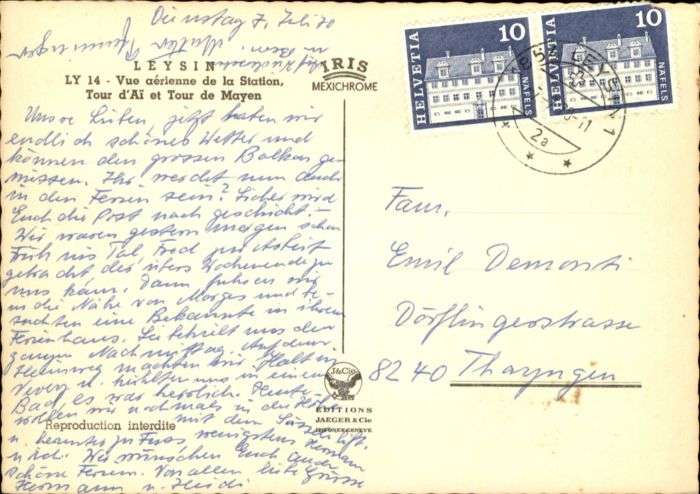 Dienstag 7. Juli 70
LEYSIN
LY 14 - Vue aérienne de la Station,
Tour d'Aï et Tour de Mayen
IRIS
MEXICHROME
Unsre Lieben, jetzt haben wir
endlich schönes Wetter und
können den grossen Balkon ge-
niessen. Ihr werdet nun auch
in den Ferien sein? Sicher wird
Euch die Post nach geschickt. -
Wir waren gestern morgen schon
früh ins Tal, Fred zur Arbeit
gebracht der übers Wochenende zu
uns kam. Dann fuhren wir
in die Nähe von Morges und be-
suchten eine Bekannte in ihrem
Ferienhaus. Sie behielt uns den
ganzen Nachmittag. Auf dem
Heimweg machten wir Halt in
Vevey u. kühlten uns in einem
Bad, es war herrlich. Heute
wollen wir nochmals in die Höh
mit dem Sessellift
u. herunter zu Fuss wenigstens Hermann
u. ich. Wir wünschen Euch auch
schöne Ferien. Von allen liebe Grüsse
Hermann u. Heidi
Reproduction interdite
J&Cie
EDITIONS
JAEGER & Cie
GENEVE
HELVETIA 10 NÄFELS
HELVETIA 10 NÄFELS
2a
Fam.
Emil Demonti
Dörflingerstrasse
8240 Thayngen